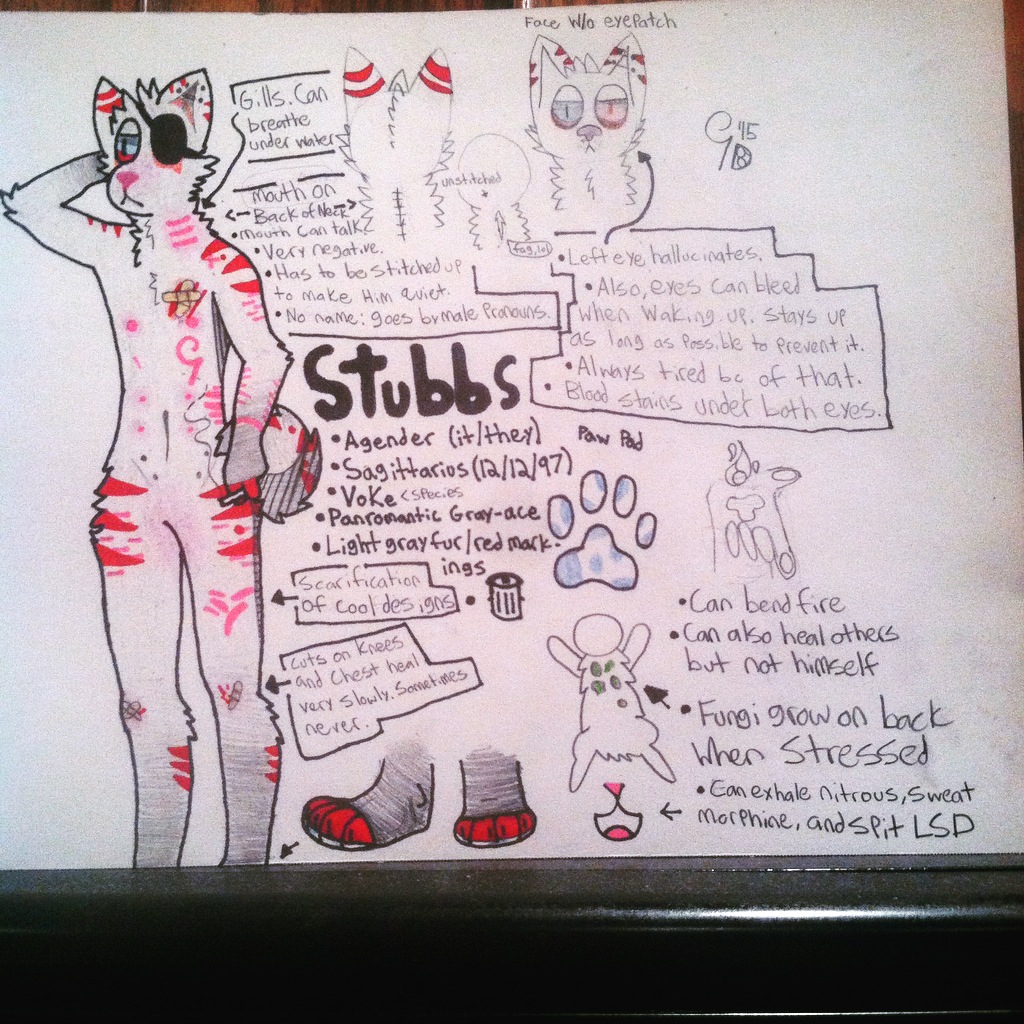 Face w/o eyepatch
Gills. Can
breathe
under water
'15
Mouth on
Back of Neck
• Mouth Can talk.
• Very negative.
• Has to be stitched up
to make Him quiet.
• No name: goes by male Pronouns.
unstitched
fag, lol
• Left eye hallucinates.
• Also, eyes can bleed
when waking up. Stays up
as long as possible to prevent it.
• Always tired bc of that.
• Blood stains under both eyes.
Stubbs
• Agender (it/they)
• Sagittarius (12/12/97)
• Voke < species
• Panromantic Gray-ace
• Light gray fur/red mark-
ings
Paw Pad
Scarification
of cool designs
Cuts on Knees
and Chest heal
very slowly. Sometimes
never.
• Can bend fire
• Can also heal others
but not himself
• Fungi grow on back
when Stressed
• Can exhale nitrous, sweat
morphine, and spit LSD